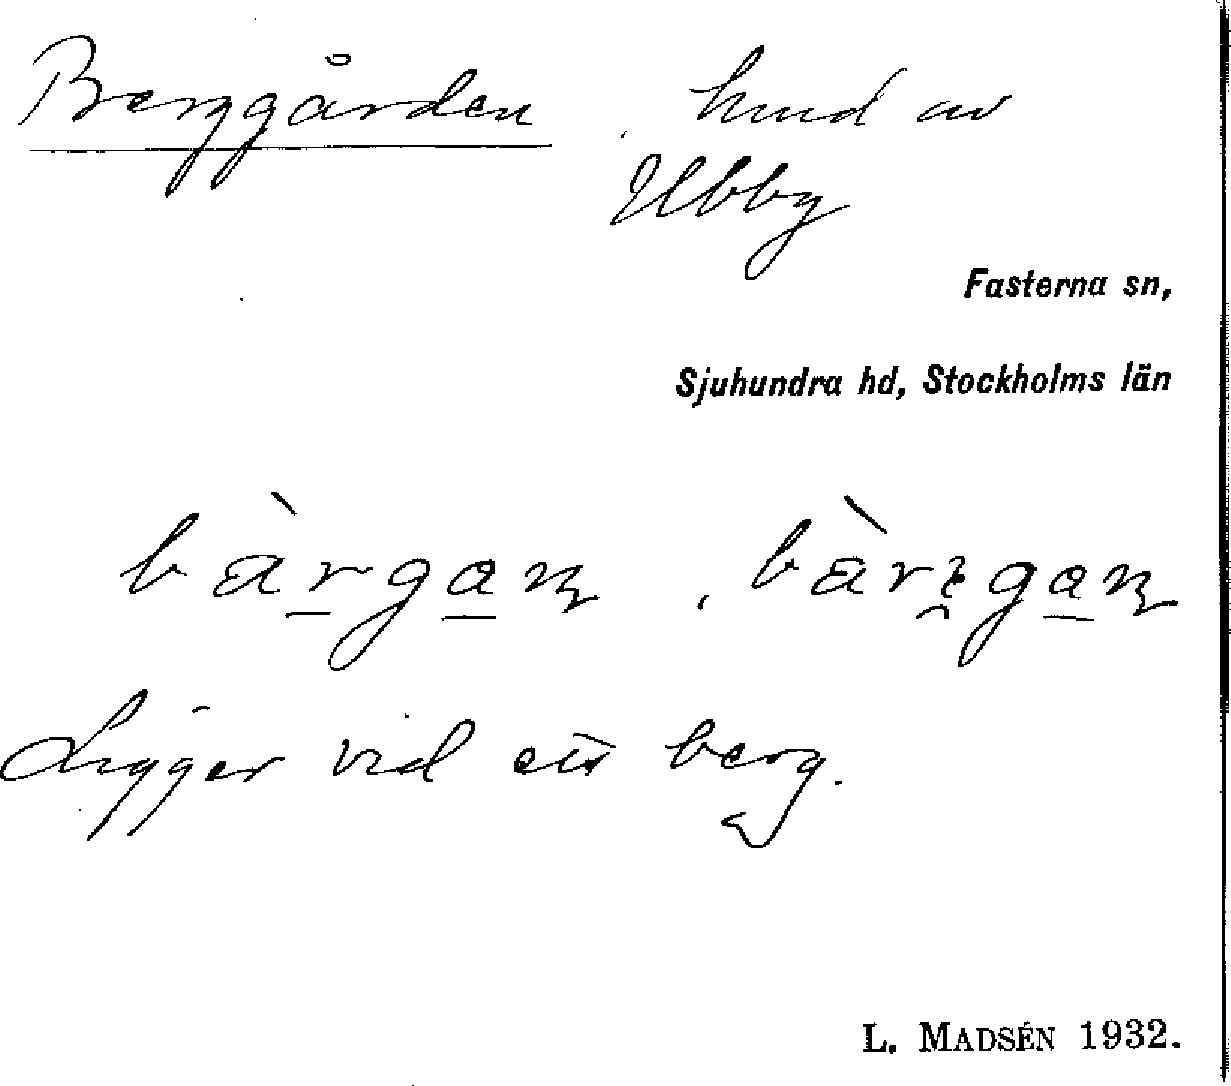 Berggården, hmd av
Ubby
Fasterna sn,
Sjuhundra hd, Stockholms län
bàrgan, bàrɛgan
Ligger vid ett berg.
L. MADSÉN 1932.